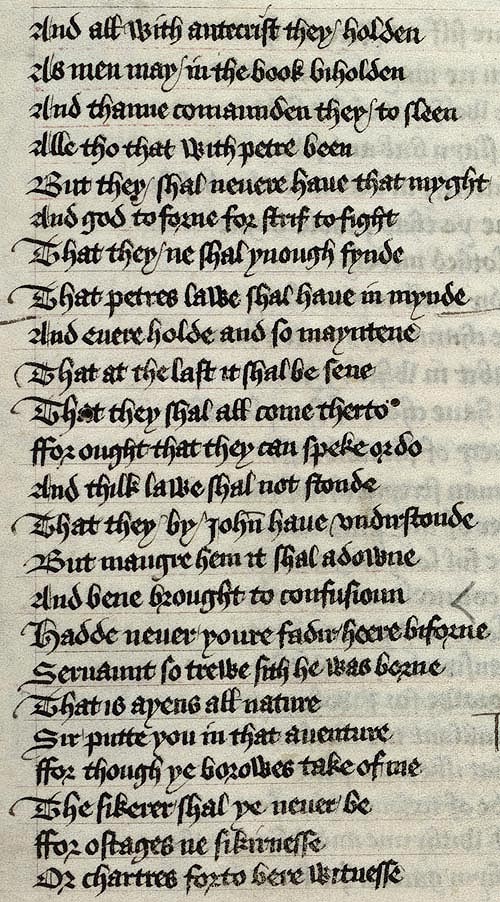 And all with antecrist they holden
As men may in the book biholden
And thanne comaunden they to sleen
Alle tho that with petre been
But they shal neuere haue that myght
And god toforne for strif to fight
That they ne shal ynough fynde
That petres lawe shal haue in mynde
And euere holde and so mayntene
That at the last it shal be sene
That they shal all come therto
ffor ought that they can speke or do
And thilk lawe shal not stonde
That they by John haue vndirstonde
But maugre hem it shal adowne
And bene brought to confusioun
Hadde neuer youre fadir heere biforne
Seruaunt so trewe sith he was borne
That is ayens all nature
Sir putte you in that auenture
ffor though ye borowes take of me
The sikerer shal ye neuer be
ffor ostages ne sikirnesse
Or chartres forto bere witnesse